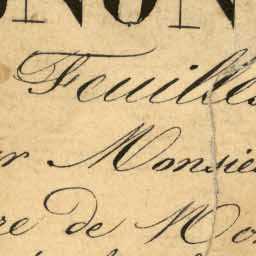 NON
Feuilles
r Monsie
re de Mo